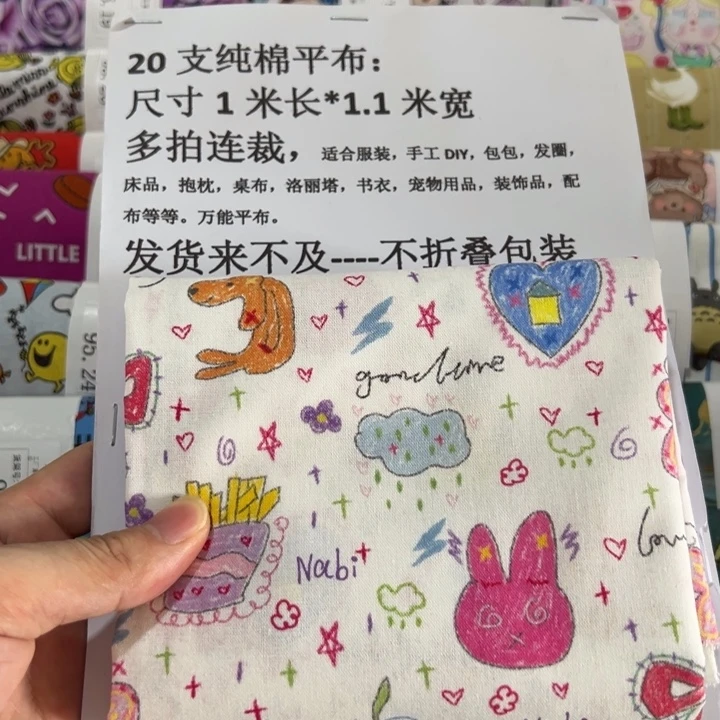 20 支纯棉平布：
尺寸 1 米长*1.1 米宽
多拍连裁，适合服装，手工 DIY，包包，发圈，
床品，抱枕，桌布，洛丽塔，书衣，宠物用品，装饰品，配
布等等。万能平布。
发货来不及----不折叠包装
LITTLE
Nabi